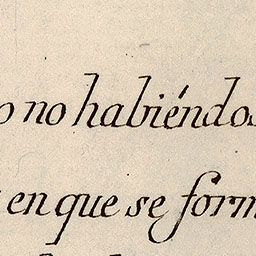 o no habiéndos
en que se form